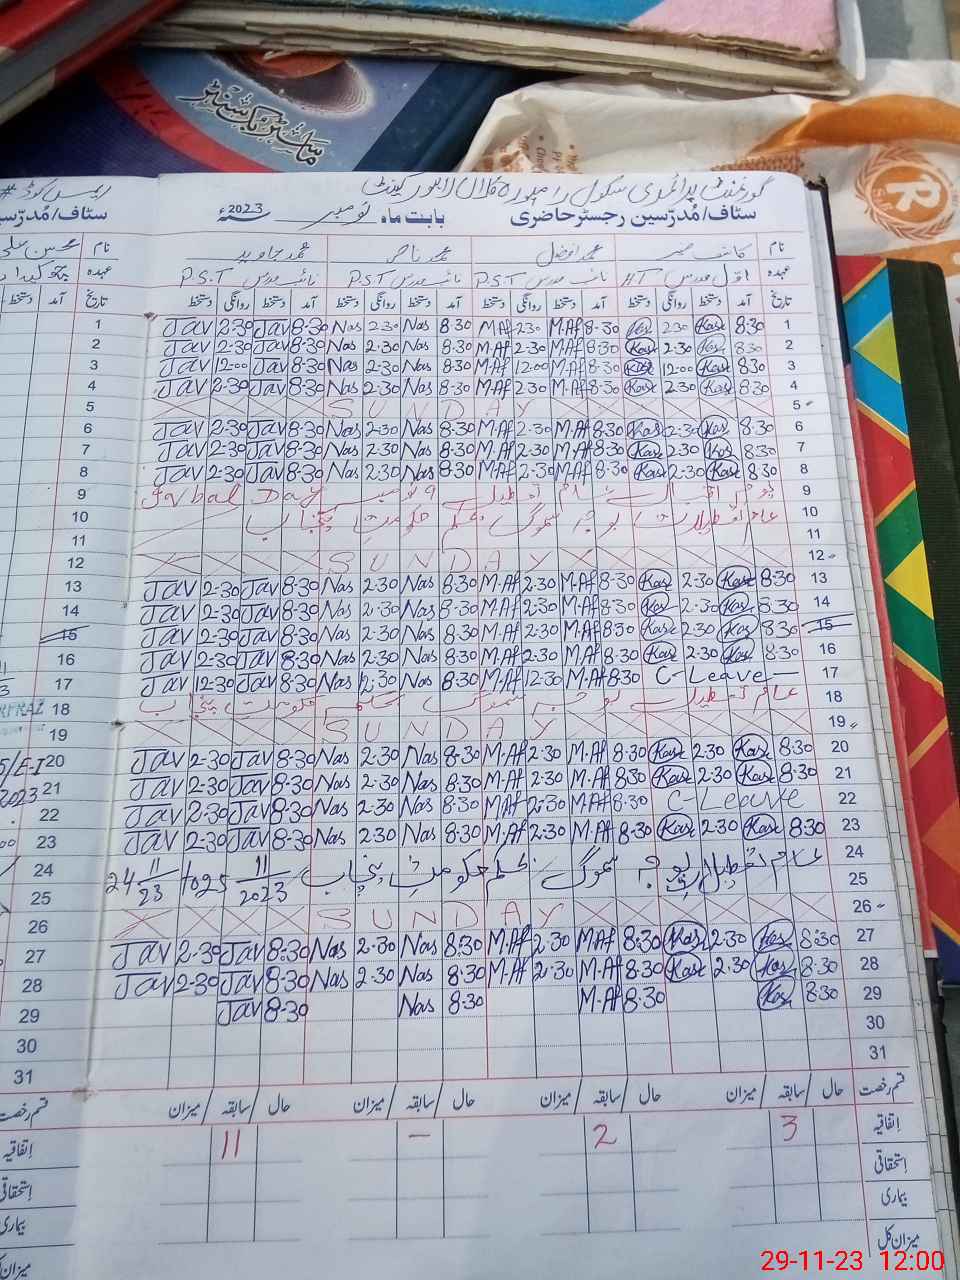 ماسٹر بک سنٹر
R
گورنمنٹ پرائمری سکول لاہور کینٹ
سٹاف/مُدرّسین رجسٹر حاضری بابت ماہ نومبر 2023ء
نام محمد افضل محمد ناصر محمد جاوید
عہدہ اوّل مدرس HT نائب مدرس P.S.T نائب مدرس P.S.T نائب مدرس P.S.T
تاریخ آمد دستخط روانگی دستخط آمد دستخط روانگی دستخط آمد دستخط روانگی دستخط آمد دستخط روانگی دستخط
1 8:30 Kas 2:30 Kas 8:30 M.Af 2:30 M.Af 8:30 Nas 2:30 Nas 8:30 Jav 2:30 Jav
2 8:30 Kas 2:30 Kas 8:30 M.Af 2:30 M.Af 8:30 Nas 2:30 Nas 8:30 Jav 2:30 Jav
3 8:30 Kas 12:00 Kas 8:30 M.Af 12:00 M.Af 8:30 Nas 2:30 Nas 8:30 Jav 12:00 Jav
4 8:30 Kas 2:30 Kas 8:30 M.Af 2:30 M.Af 8:30 Nas 2:30 Nas 8:30 Jav 2:30 Jav
5 SUNDAY
6 8:30 Kas 2:30 Kas 8:30 M.Af 2:30 M.Af 8:30 Nas 2:30 Nas 8:30 Jav 2:30 Jav
7 8:30 Kas 2:30 Kas 8:30 M.Af 2:30 M.Af 8:30 Nas 2:30 Nas 8:30 Jav 2:30 Jav
8 8:30 Kas 2:30 Kas 8:30 M.Af 2:30 M.Af 8:30 Nas 2:30 Nas 8:30 Jav 2:30 Jav
9 یوم اقبال عام تعطیل 9 نومبر Iqbal Day
10 عام تعطیلات بوجہ سموگ بحکم حکومت پنجاب
11
12 SUNDAY
13 8:30 Kas 2:30 Kas 8:30 M.Af 2:30 M.Af 8:30 Nas 2:30 Nas 8:30 Jav 2:30 Jav
14 8:30 Kas 2:30 Kas 8:30 M.Af 2:30 M.Af 8:30 Nas 2:30 Nas 8:30 Jav 2:30 Jav
15 8:30 Kas 2:30 Kas 8:30 M.Af 2:30 M.Af 8:30 Nas 2:30 Nas 8:30 Jav 2:30 Jav
16 8:30 Kas 2:30 Kas 8:30 M.Af 2:30 M.Af 8:30 Nas 2:30 Nas 8:30 Jav 2:30 Jav
17 C-Leave 8:30 M.Af 12:30 M.Af 8:30 Nas 12:30 Nas 8:30 Jav 12:30 Jav
18 عام تعطیل بوجہ سموگ بحکم حکومت پنجاب
19 SUNDAY
20 8:30 Kas 2:30 Kas 8:30 M.Af 2:30 M.Af 8:30 Nas 2:30 Nas 8:30 Jav 2:30 Jav
21 8:30 Kas 2:30 Kas 8:30 M.Af 2:30 M.Af 8:30 Nas 2:30 Nas 8:30 Jav 2:30 Jav
22 C-Leave 8:30 M.Af 2:30 M.Af 8:30 Nas 2:30 Nas 8:30 Jav 2:30 Jav
23 8:30 Kas 2:30 Kas 8:30 M.Af 2:30 M.Af 8:30 Nas 2:30 Nas 8:30 Jav 2:30 Jav
24 عام تعطیل بوجہ سموگ بحکم حکومت پنجاب 24 11/23 to 25 11/2023
25
26 SUNDAY
27 8:30 Kas 2:30 Kas 8:30 M.Af 2:30 M.Af 8:30 Nas 2:30 Nas 8:30 Jav 2:30 Jav
28 8:30 Kas 2:30 Kas 8:30 M.Af 2:30 M.Af 8:30 Nas 2:30 Nas 8:30 Jav 2:30 Jav
29 8:30 Kas 8:30 M.Af 8:30 Nas 8:30 Jav
30
31
قسم رخصت حال / سابقہ / میزان حال / سابقہ / میزان حال / سابقہ / میزان حال / سابقہ / میزان
اتفاقیہ 3 2 – 11
استحقاقی
بیماری
میزان کل
29-11-23 12:00